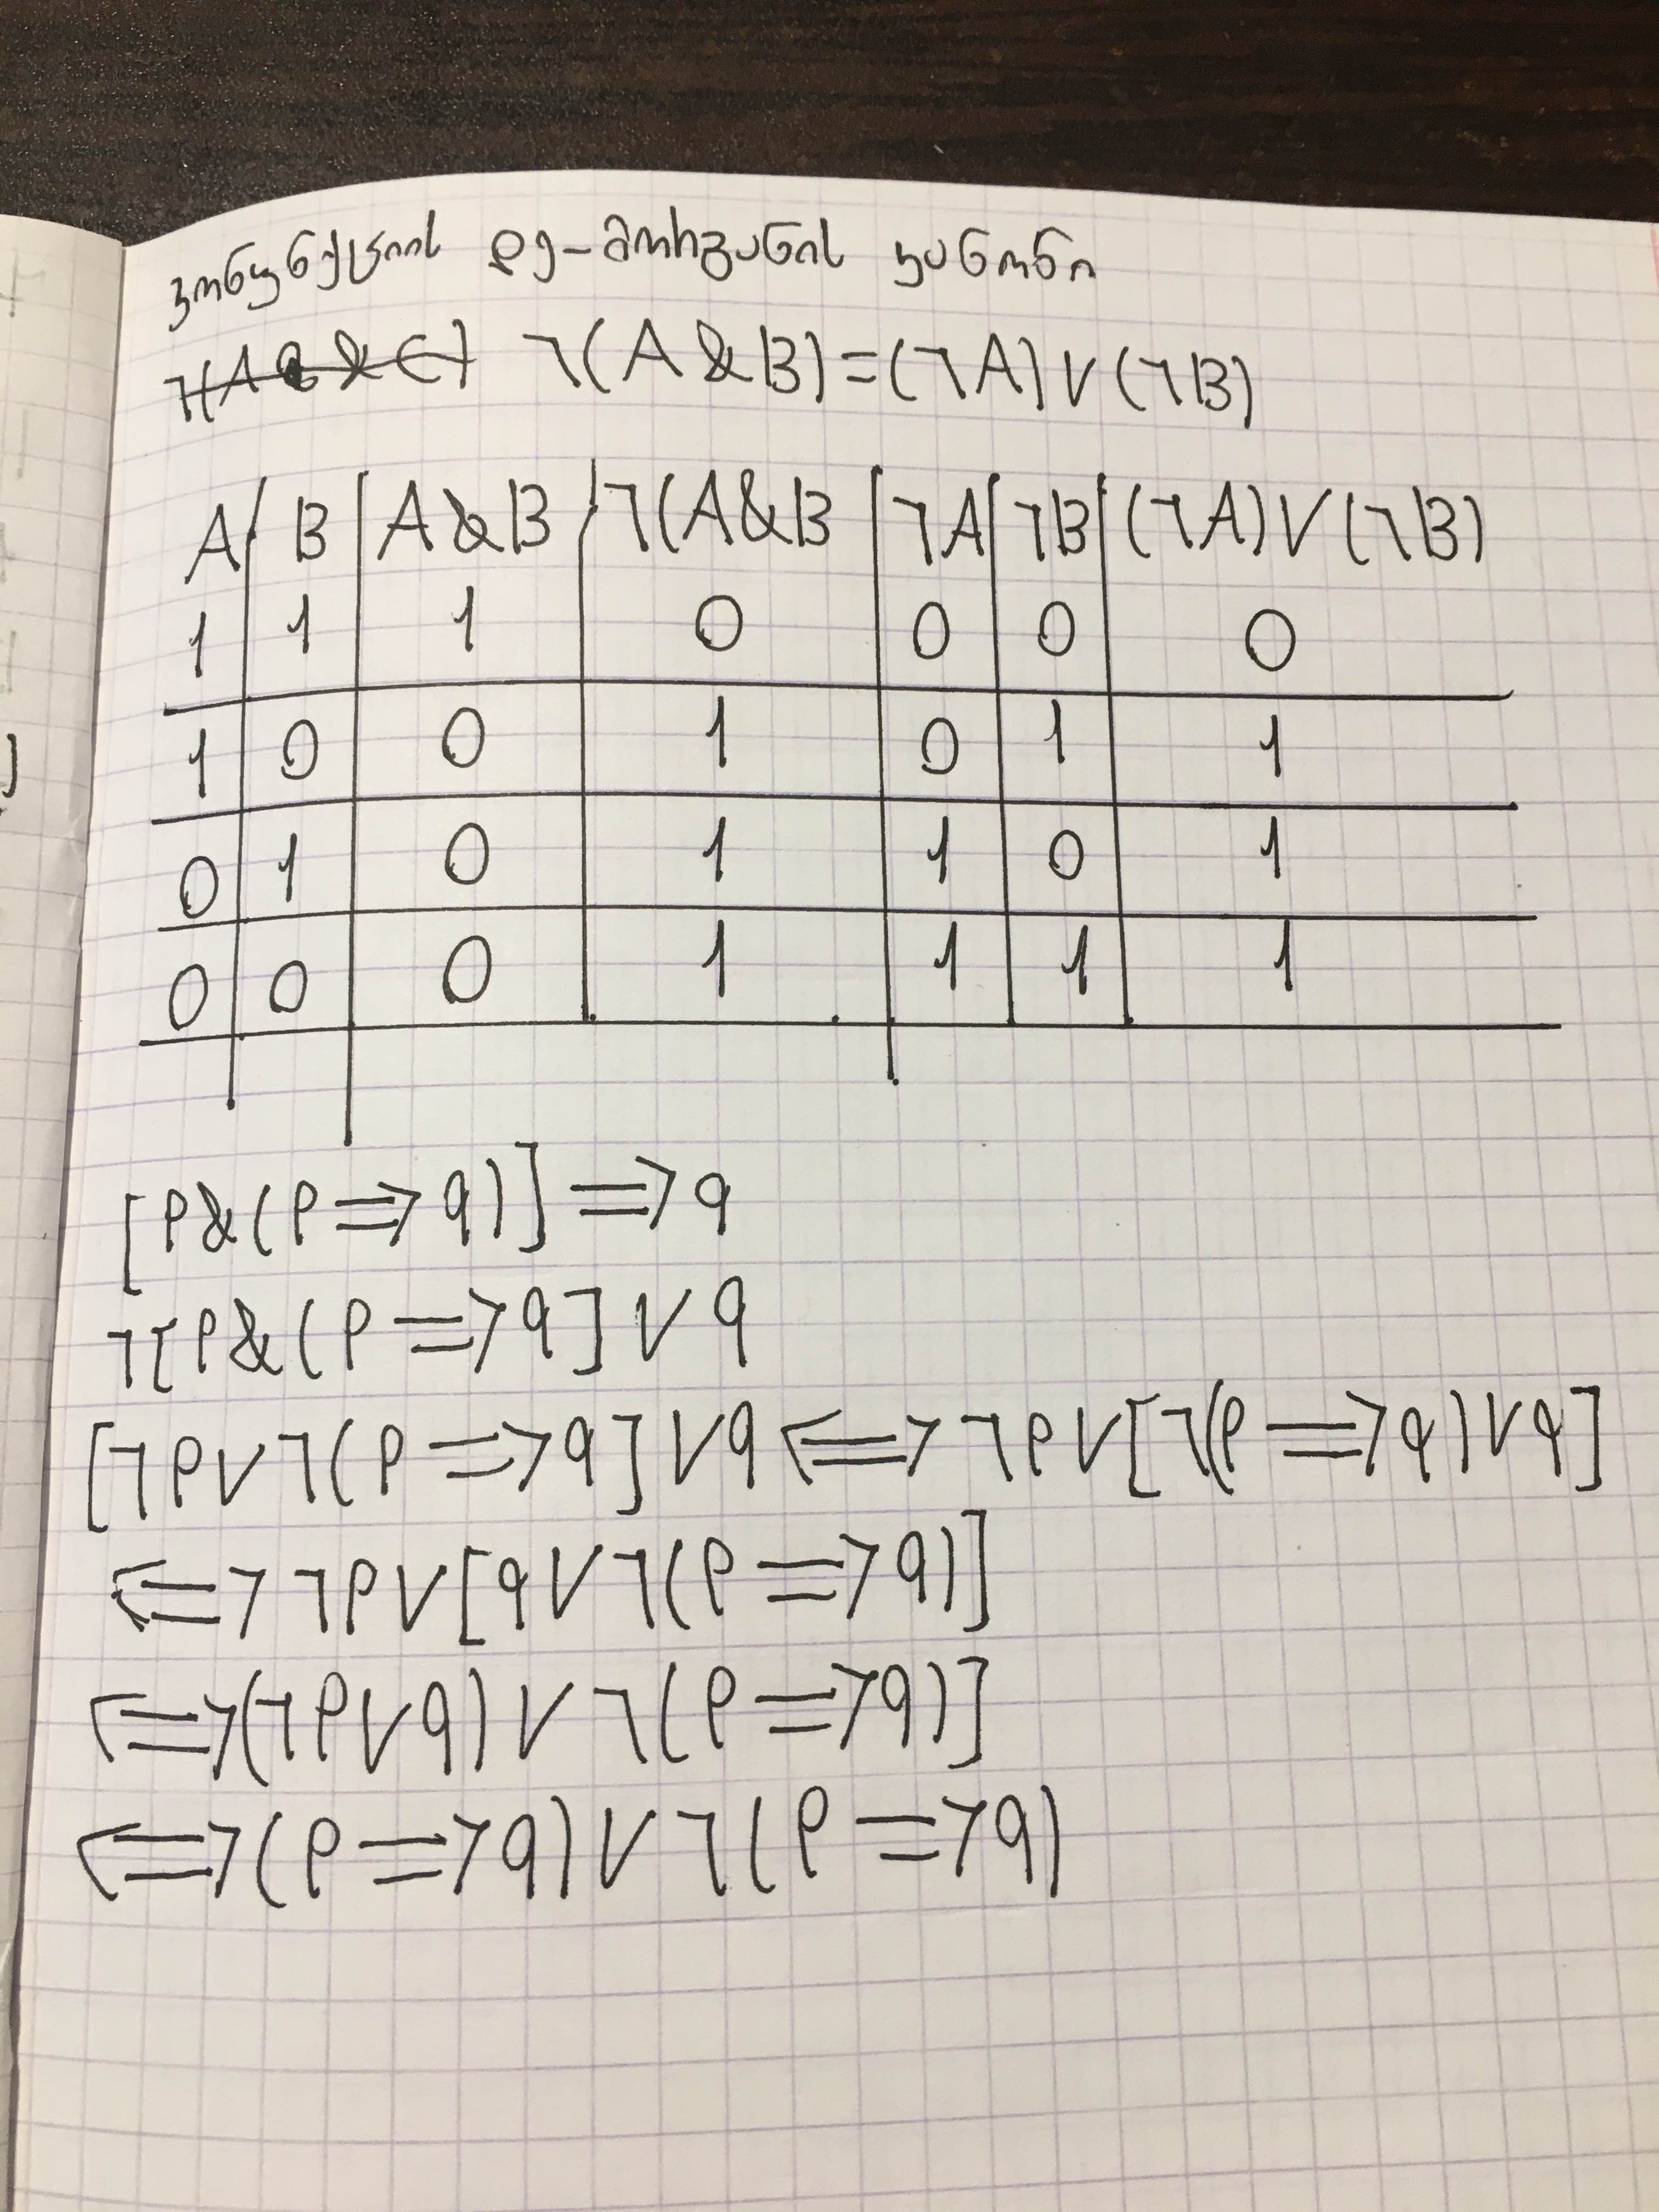 კონუნქციის დე-მორგანის კანონი
¬(A & B) = (¬A) ∨ (¬B)
A | B | A & B | ¬(A & B | ¬A | ¬B | (¬A) ∨ (¬B)
1 | 1 | 1 | 0 | 0 | 0 | 0
1 | 0 | 0 | 1 | 0 | 1 | 1
0 | 1 | 0 | 1 | 1 | 0 | 1
0 | 0 | 0 | 1 | 1 | 1 | 1
[P & (P => q)] => q
¬[P & (P => q] ∨ q
[¬P ∨ ¬(P => q] ∨ q <=> ¬P ∨ [¬(P => q) ∨ q]
<=> ¬P ∨ [q ∨ ¬(P => q)]
<=> (¬P ∨ q) ∨ ¬(P => q)]
<=> (P => q) ∨ ¬(P => q)